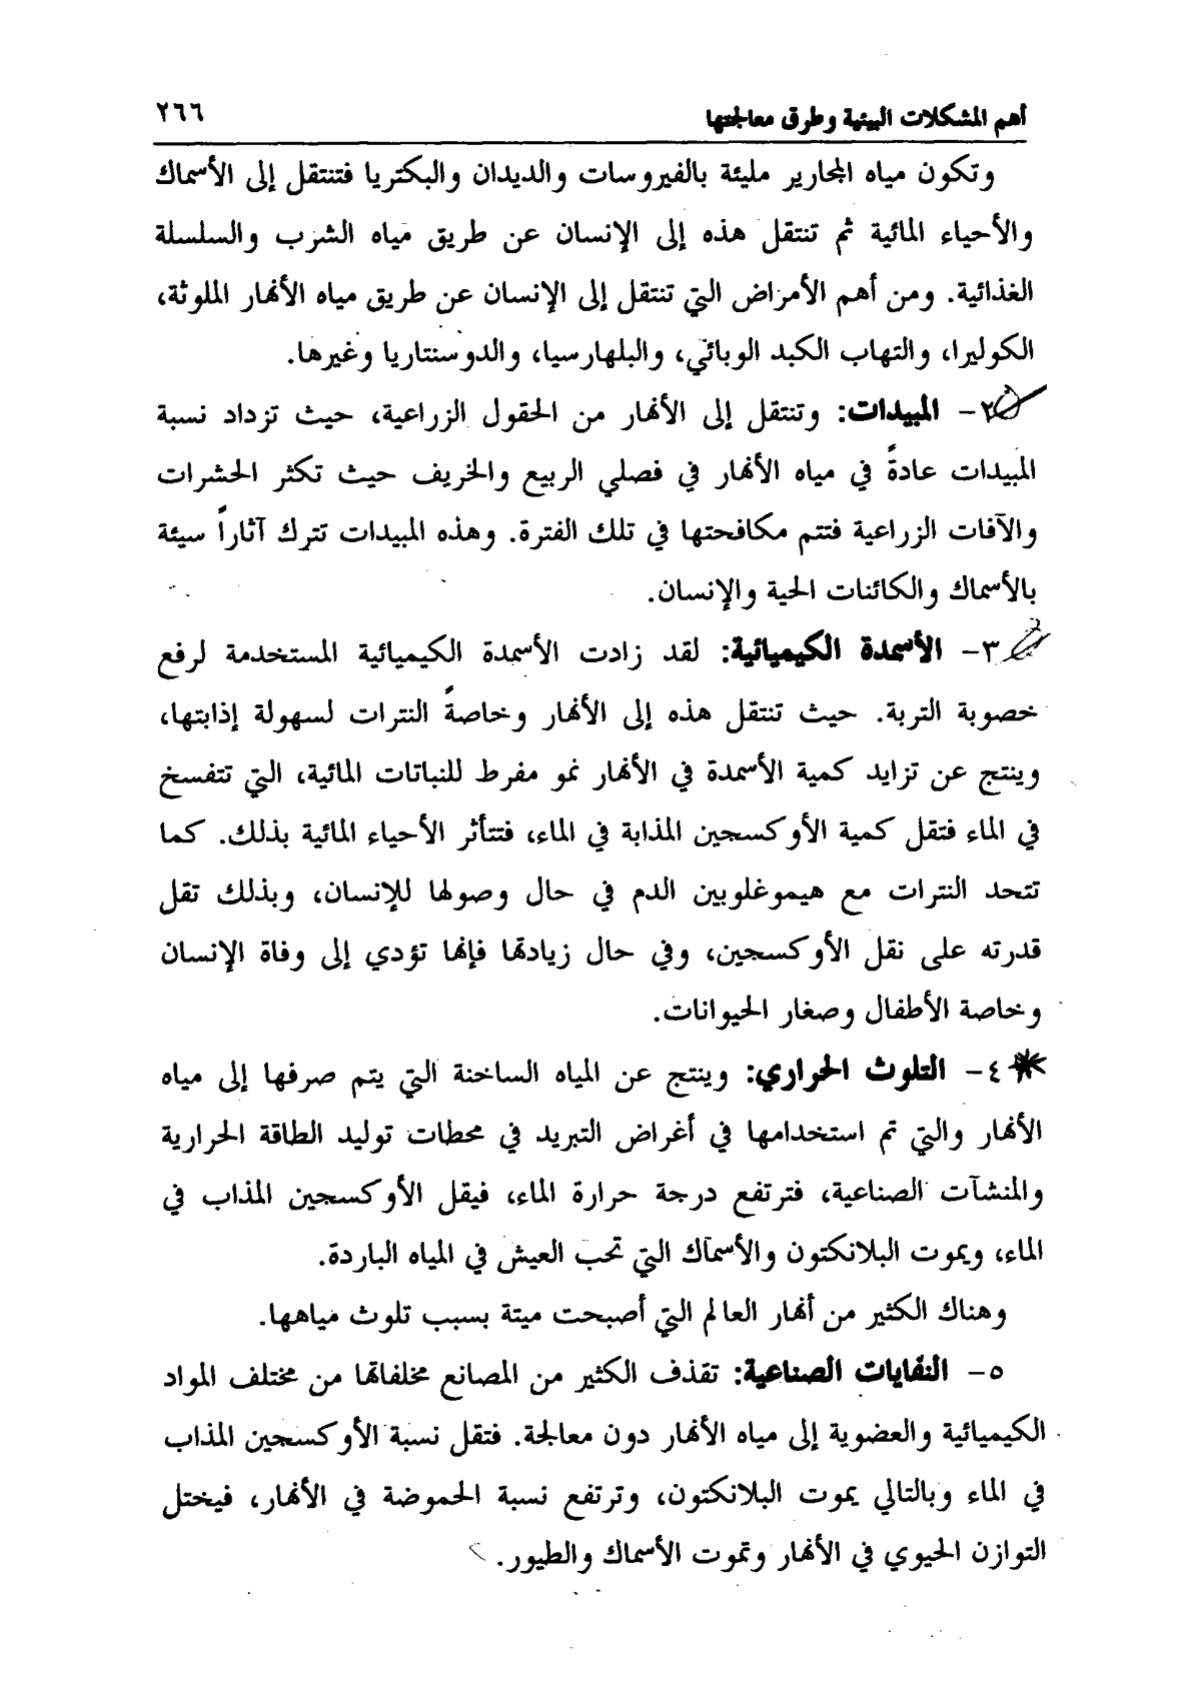 أهم المشكلات البيئية وطرق معالجتها ٢٦٦
وتكون مياه المجارير مليئة بالفيروسات والديدان والبكتريا فتنتقل إلى الأسماك
والأحياء المائية ثم تنتقل هذه إلى الإنسان عن طريق مياه الشرب والسلسلة
الغذائية. ومن أهم الأمراض التي تنتقل إلى الإنسان عن طريق مياه الأنهار الملوثة،
الكوليرا، والتهاب الكبد الوبائي، والبلهارسيا، والدوسنتاريا وغيرها.
٢- المبيدات: وتنتقل إلى الأنهار من الحقول الزراعية، حيث تزداد نسبة
المبيدات عادةً في مياه الأنهار في فصلي الربيع والخريف حيث تكثر الحشرات
والآفات الزراعية فتتم مكافحتها في تلك الفترة. وهذه المبيدات تترك آثاراً سيئة
بالأسماك والكائنات الحية والإنسان.
٣- الأسمدة الكيميائية: لقد زادت الأسمدة الكيميائية المستخدمة لرفع
خصوبة التربة. حيث تنتقل هذه إلى الأنهار وخاصةً النترات لسهولة إذابتها،
وينتج عن تزايد كمية الأسمدة في الأنهار نمو مفرط للنباتات المائية، التي تتفسخ
في الماء فتقل كمية الأوكسجين المذابة في الماء، فتتأثر الأحياء المائية بذلك. كما
تتحد النترات مع هيموغلوبين الدم في حال وصولها للإنسان، وبذلك تقل
قدرته على نقل الأوكسجين، وفي حال زيادتها فإنها تؤدي إلى وفاة الإنسان
وخاصة الأطفال وصغار الحيوانات.
٤- التلوث الحراري: وينتج عن المياه الساخنة التي يتم صرفها إلى مياه
الأنهار والتي تم استخدامها في أغراض التبريد في محطات توليد الطاقة الحرارية
والمنشآت الصناعية، فترتفع درجة حرارة الماء، فيقل الأوكسجين المذاب في
الماء، ويموت البلانكتون والأسماك التي تحب العيش في المياه الباردة.
وهناك الكثير من أنهار العالم التي أصبحت ميتة بسبب تلوث مياهها.
٥- النفايات الصناعية: تقذف الكثير من المصانع مخلفاتها من مختلف المواد
الكيميائية والعضوية إلى مياه الأنهار دون معالجة. فتقل نسبة الأوكسجين المذاب
في الماء وبالتالي يموت البلانكتون، وترتفع نسبة الحموضة في الأنهار، فيختل
التوازن الحيوي في الأنهار وتموت الأسماك والطيور.